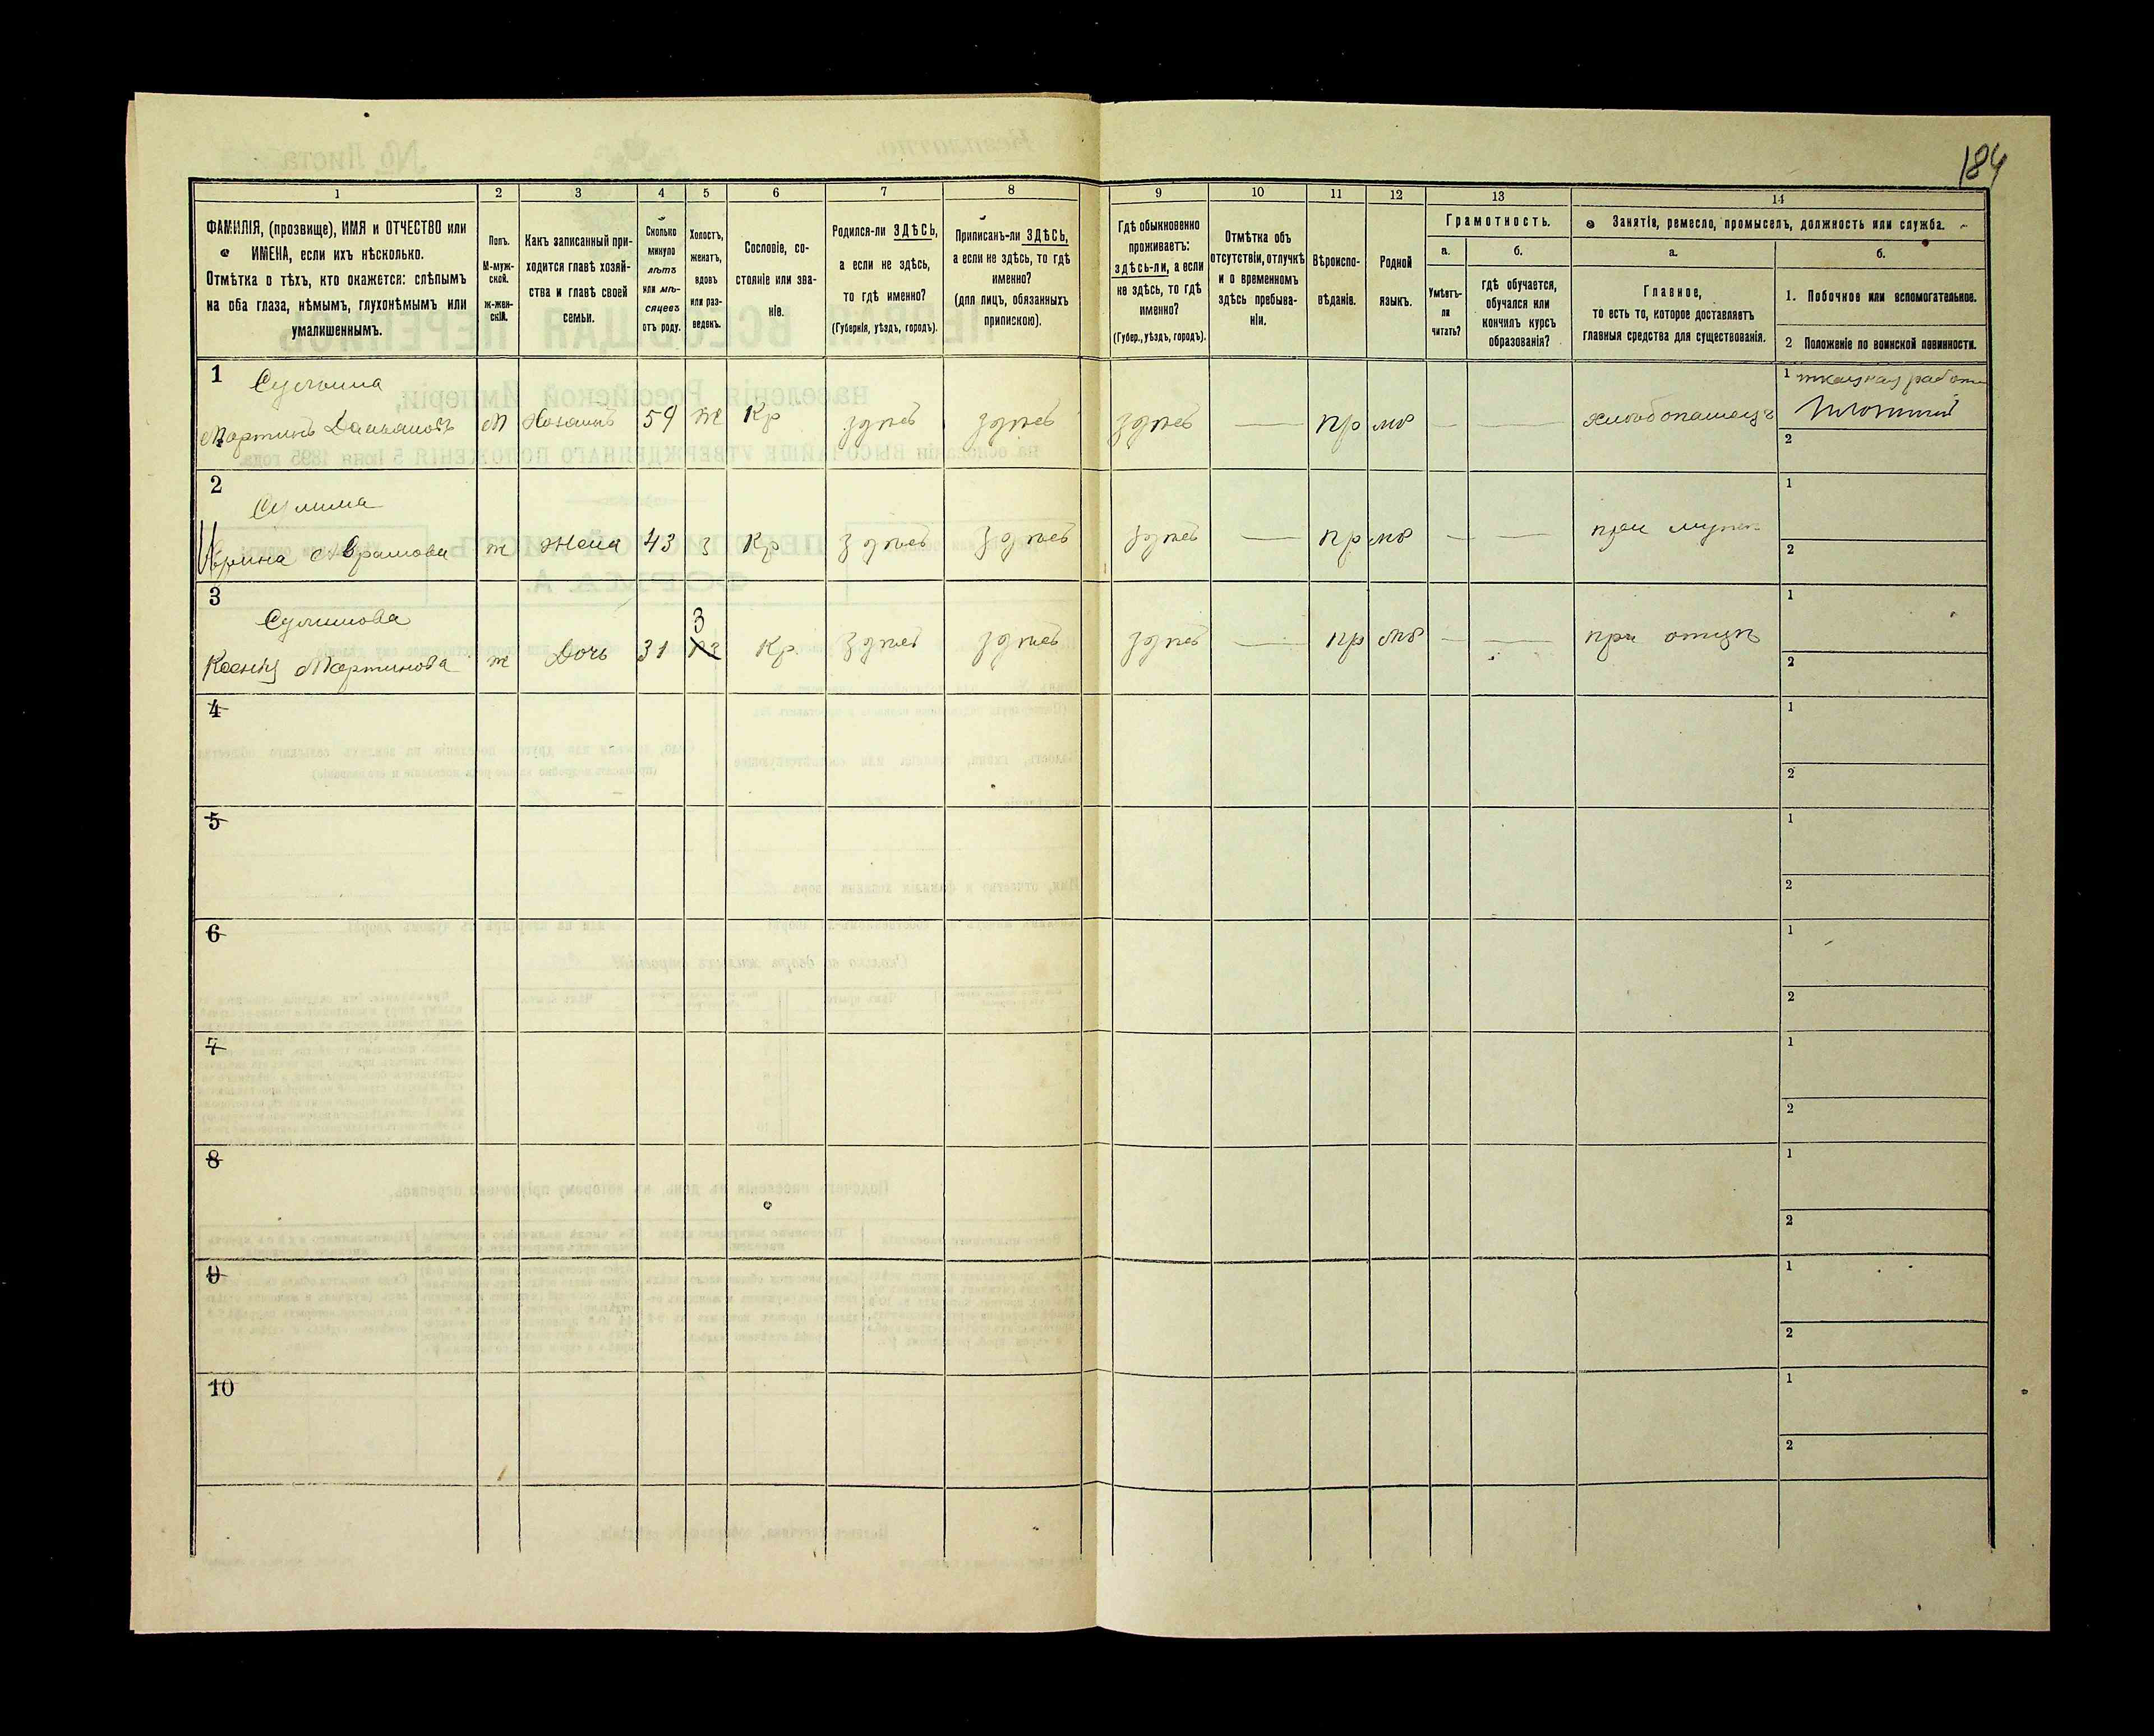 184
1
2
3
4
5
6
7
8
9
10
11
12
13
14
ФАМИЛІЯ, (прозвище), ИМЯ и ОТЧЕСТВО или
ИМЕНА, если ихъ нѣсколько.
Отмѣтка о тѣхъ, кто окажется: слѣпымъ
на оба глаза, нѣмымъ, глухонѣмымъ или
умалишеннымъ.
Полъ.
М-муж-
ской.
ж-жен-
скій.
Какъ записанный при-
ходится главѣ хозяй-
ства и главѣ своей
семьи.
Сколько
минуло
лѣтъ
или мѣ-
сяцевъ
отъ роду.
Холостъ,
женатъ,
вдовъ
или раз-
веденъ.
Сословіе, со-
стояніе или зва-
ніе.
Родился-ли ЗДѢСЬ,
а если не здѣсь,
то гдѣ именно?
(Губернія, уѣздъ, городъ).
Приписанъ-ли ЗДѢСЬ,
а если не здѣсь, то гдѣ
именно?
(для лицъ, обязанныхъ
припискою).
Гдѣ обыкновенно
проживаетъ:
здѣсь-ли, а если
не здѣсь, то гдѣ
именно?
(Губер., уѣздъ, городъ).
Отмѣтка объ
отсутствіи, отлучкѣ
и о временномъ
здѣсь пребыва-
ніи.
Вѣроиспо-
вѣданіе.
Родной
языкъ.
Грамотность.
а.
Умѣетъ-
ли
читать?
б.
гдѣ обучается,
обучался или
кончилъ курсъ
образованія?
Занятія, ремесло, промыселъ, должность или служба.
а.
Главное,
то есть то, которое доставляетъ
главныя средства для существованія.
б.
1. Побочное или вспомогательное.
2 Положеніе по воинской повинности.
1
Мартинъ
М
Хозаинъ
59
ж
Кр
здѣсь
здѣсь
здѣсь
—
пр
мр
—
—
хлѣбопашецъ
1
2
2
Сулима
Ирина Аврамова
ж
Жена
43
з
Кр
здѣсь
здѣсь
здѣсь
—
пр
мр
—
—
при мужѣ
1
2
3
Сулимова
Ксенія Мартинова
ж
Дочь
31
З
Кр.
здѣсь
здѣсь
здѣсь
—
пр
мр
—
—
при отцѣ
1
2
4
1
2
5
1
2
6
1
2
7
1
2
8
1
2
9
1
2
10
1
2